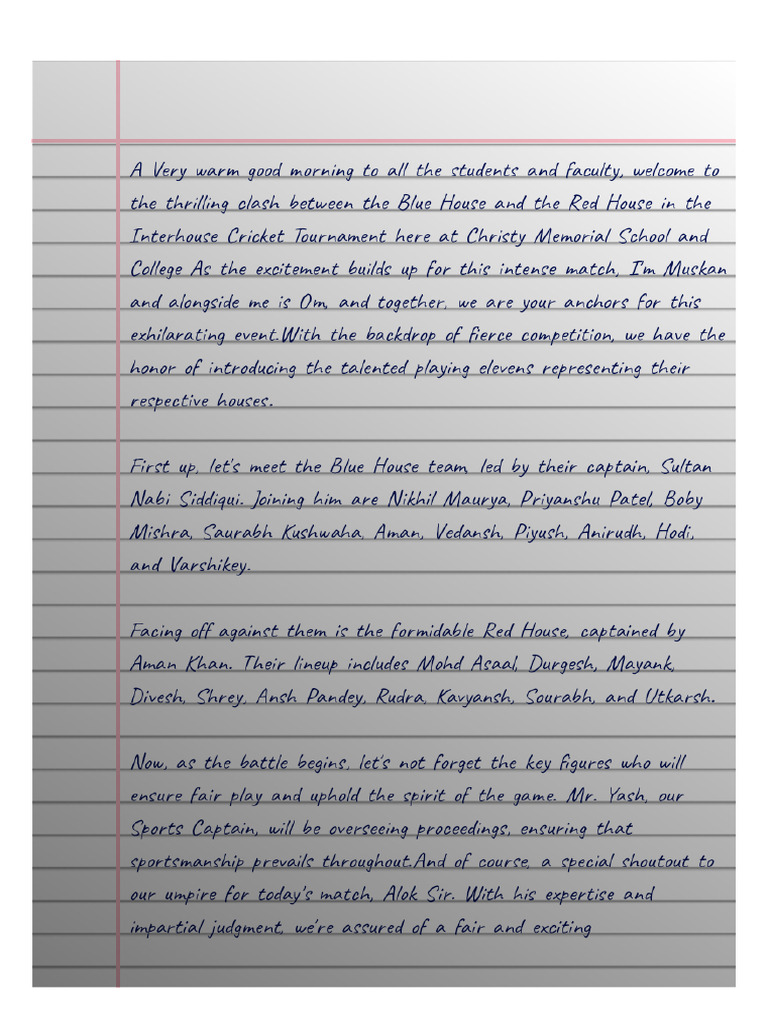 A Very warm good morning to all the students and faculty, welcome to
the thrilling clash between the Blue House and the Red House in the
Interhouse Cricket Tournament here at Christy Memorial School and
College As the excitement builds up for this intense match, I'm Muskan
and alongside me is Om, and together, we are your anchors for this
exhilarating event.With the backdrop of fierce competition, we have the
honor of introducing the talented playing elevens representing their
respective houses.
First up, let's meet the Blue House team, led by their captain, Sultan
Nabi Siddiqui. Joining him are Nikhil Maurya, Priyanshu Patel, Boby
Mishra, Saurabh Kushwaha, Aman, Vedansh, Piyush, Anirudh, Hodi,
and Varshikey.
Facing off against them is the formidable Red House, captained by
Aman Khan. Their lineup includes Mohd Asaal, Durgesh, Mayank,
Divesh, Shrey, Ansh Pandey, Rudra, Kavyansh, Sourabh, and Utkarsh.
Now, as the battle begins, let's not forget the key figures who will
ensure fair play and uphold the spirit of the game. Mr. Yash, our
Sports Captain, will be overseeing proceedings, ensuring that
sportsmanship prevails throughout.And of course, a special shoutout to
our umpire for today's match, Alok Sir. With his expertise and
impartial judgment, we're assured of a fair and exciting